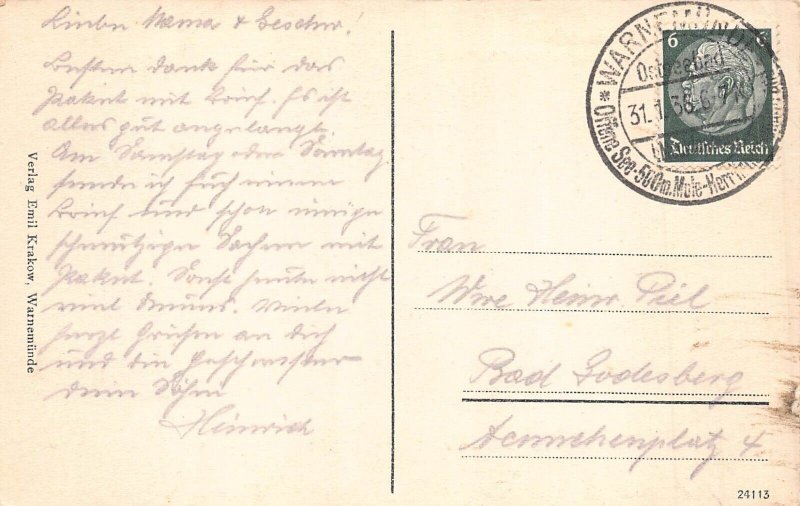 Lieben Mama & Geschw!
Besten Dank für das
Paket mit Brief. Es ist
alles gut angelangt.
Am Samstag oder Sonntag
sende ich Euch einen
Brief und schon einige
schmutzige Sachen mit
Paket. Sonst heute nicht
viel Neues. Viele
herzl Grüßen an dich
und die Geschwister
dein Sohn
Heinrich
Verlag Emil Krakow, Warnemünde
WARNEMÜNDE
Ostseebad
31. 36.6-7
Offene See-500m Mole-Herrl
6 6
Deutsches Reich
Frau
Wwe Heinr. Piel
Bad Godesberg
Aennchenplatz 4
24113